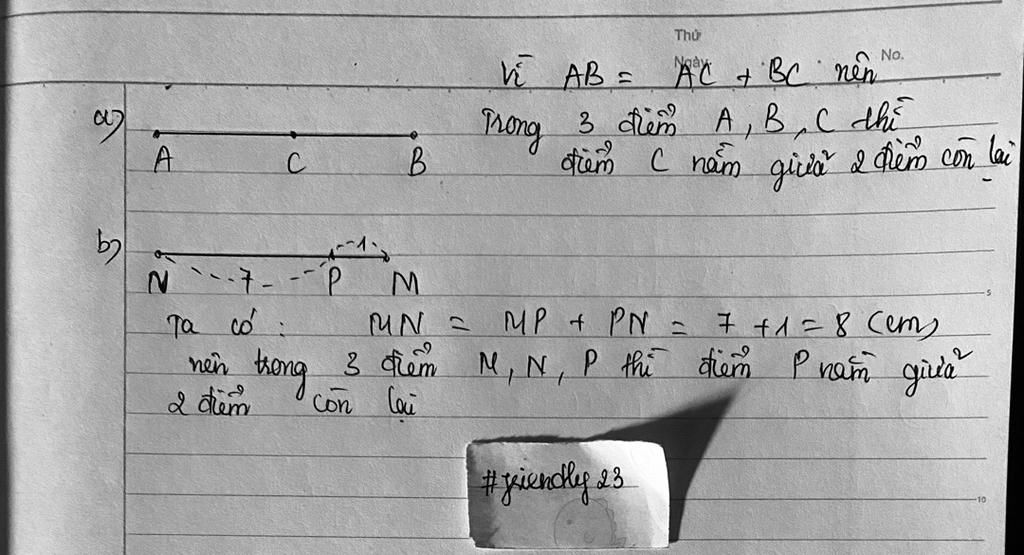 Thứ
Ngày No.
Vì AB = AC + BC nên
a) Trong 3 điểm A, B, C thì
A C B điểm C nằm giữa 2 điểm còn lại
b) 1
N 7 P M
5
Ta có: MN = MP + PN = 7 + 1 = 8 (cm)
nên trong 3 điểm M, N, P thì điểm P nằm giữa
2 điểm còn lại
#friendly23
10